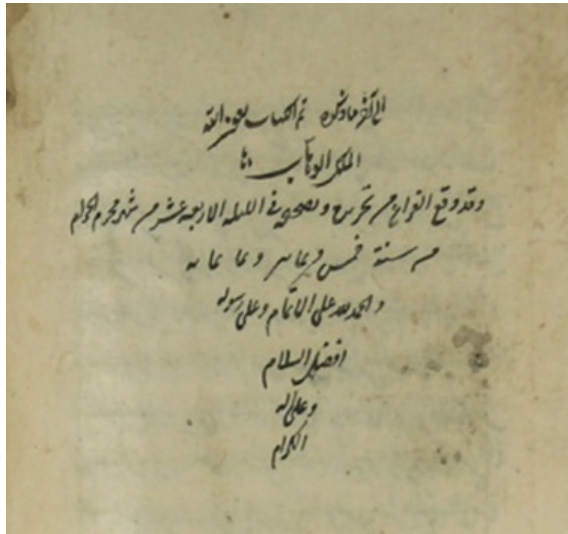 الى آخر ما ذكره تم الكتاب بعون الله
الملك الوهاب
وقد وقع الفراغ من تحريره وتصحيحه في الليلة الاربعة عشر من شهر محرم الحرام
من سنة خمس وثمانين وثمانمائه
والحمد لله على الاتمام وعلى رسوله
افضل السلام
وعلى اله
الكرام